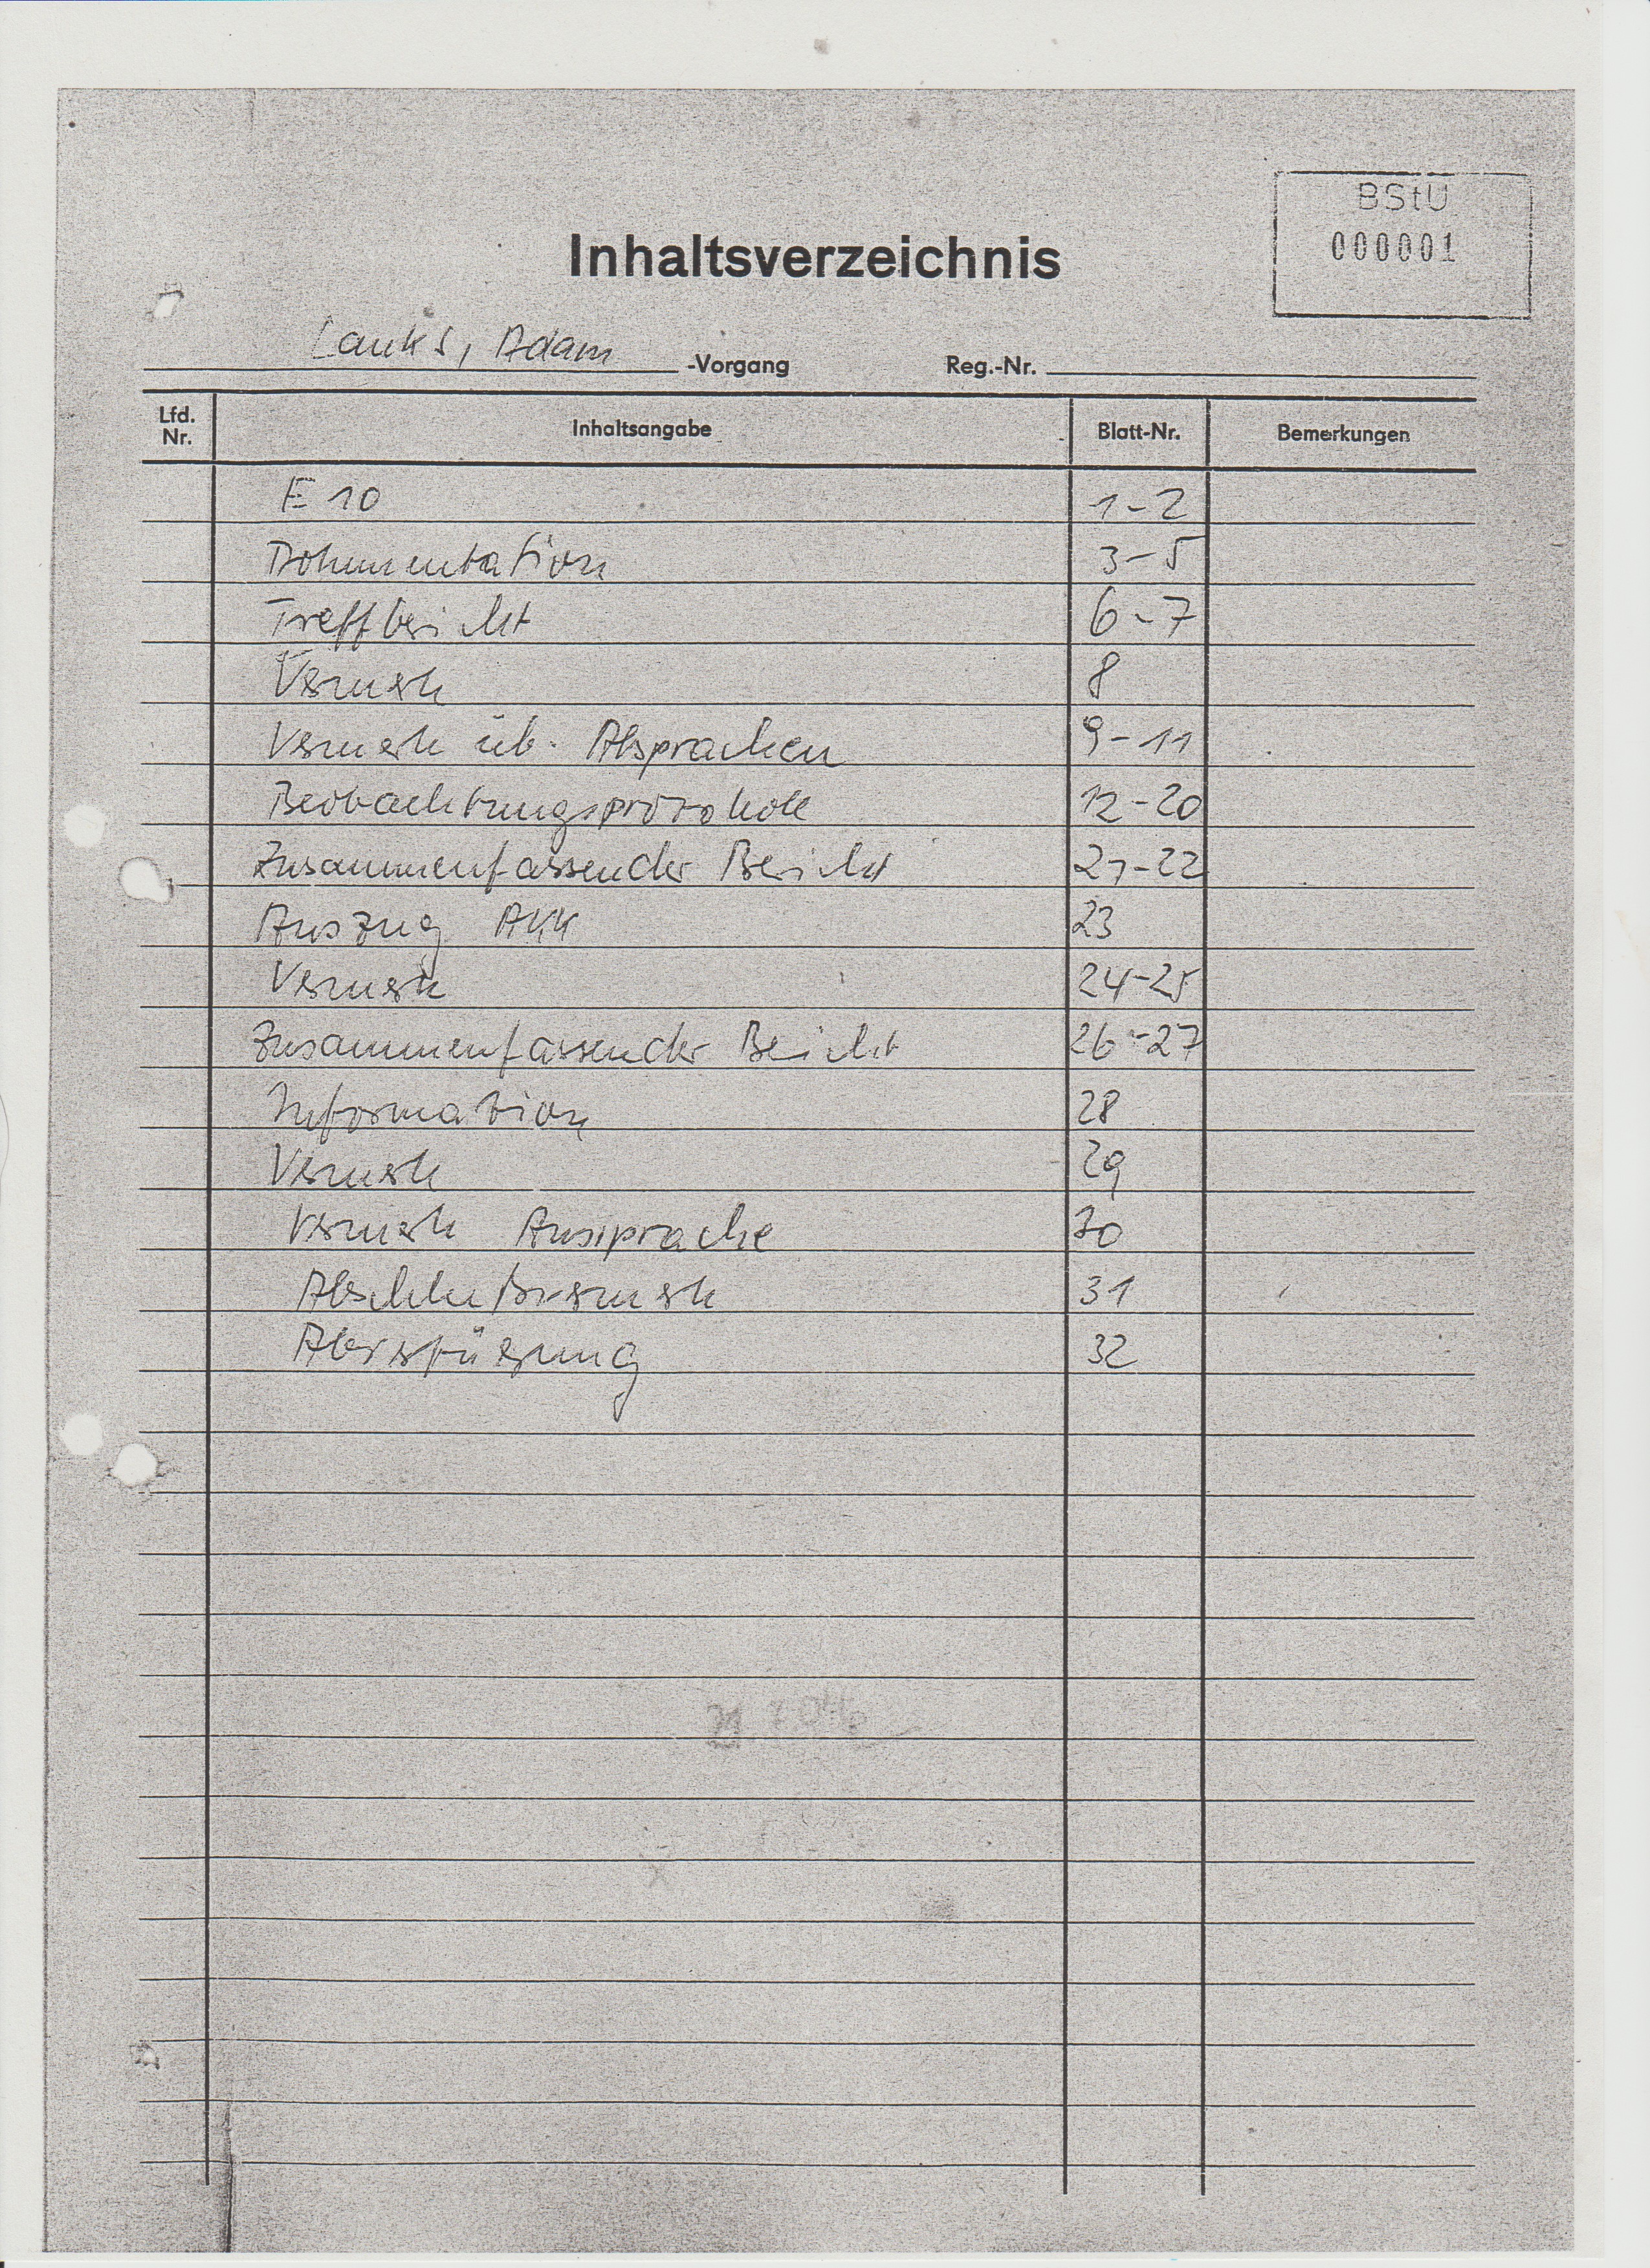 BStU
000001
Inhaltsverzeichnis
Lauks, Adam -Vorgang Reg.-Nr.
Lfd. Nr. Inhaltsangabe Blatt-Nr. Bemerkungen
E 10 1-2
Dokumentation 3-5
Treffbericht 6-7
Vermerk 8
Vermerk üb. Absprachen 9-11
Beobachtungsprotokoll 12-20
Zusammenfassender Bericht 21-22
Auszug AKK 23
Vermerk 24-25
Zusammenfassender Bericht 26-27
Information 28
Vermerk 29
Vermerk Aussprache 30
Abschlußvermerk 31
Abverfügung 32